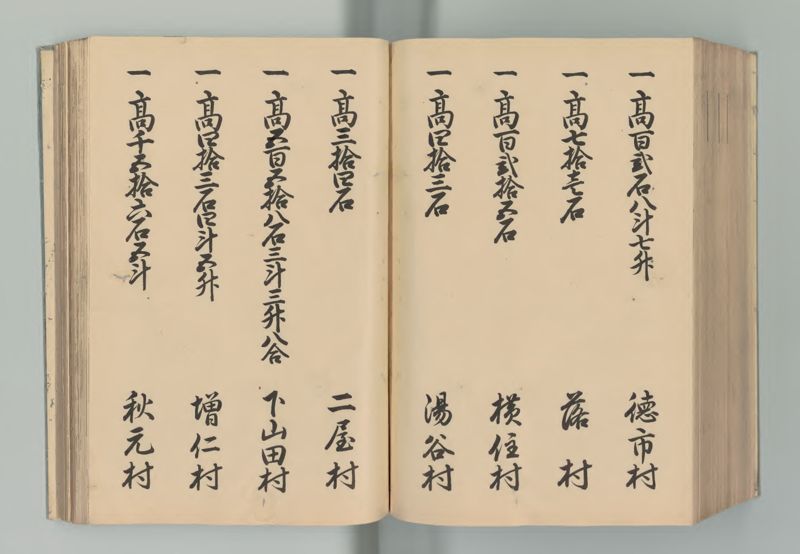 一 高百弐石八斗七升 徳市村
一 高七拾壱石 落村
一 高百弐拾五石 横住村
一 高四拾三石 湯谷村
一 高三拾四石 二屋村
一 高五百五拾八石三斗三升八合 下山田村
一 高四拾三石四斗五升 増仁村
一 高千五拾六石五斗 秋元村